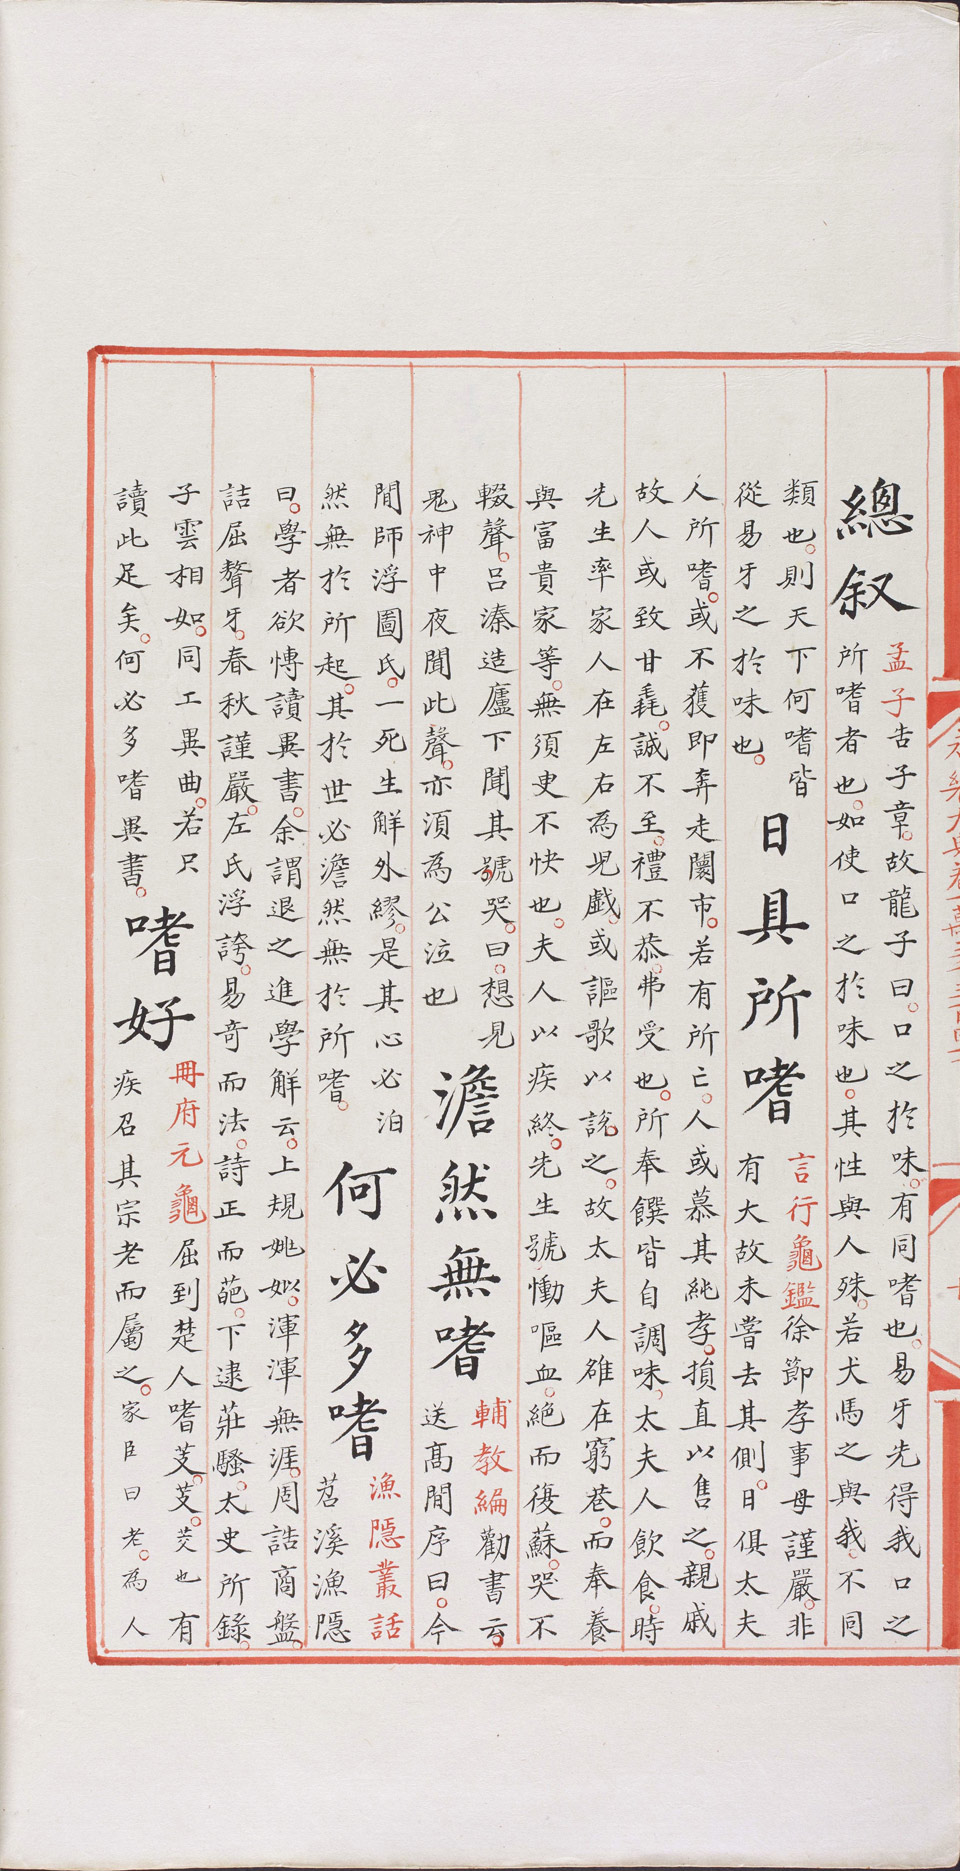 總叙
孟子告子章。故龍子曰。口之於味。有同嗜也。易牙先得我口之
所嗜者也。如使口之於味也。其性與人殊。若犬馬之與我。不同
類也。則天下何嗜皆
從易牙之於味也。
日具所嗜
言行龜鑑徐節孝事母謹嚴。非
有大故未嘗去其側。日俱太夫
人所嗜。或不獲即奔走闤市。若有所亡。人或慕其純孝。損直以售之。親戚
故人或致甘毳。誠不至。禮不恭。弗受也。所奉饌皆自調味。太夫人飲食。時
先生率家人在左右為兒戲。或謳歌以說之。故太夫人雖在窮巷。而奉養
與富貴家等。無須臾不快也。夫人以疾終。先生號慟嘔血。絕而復蘇。哭不
輟聲。呂溱造廬下聞其號哭。曰。想見
鬼神中夜聞此聲。亦須為公泣也
澹然無嗜
輔教編勸書云。
送高閒序曰。今
閒師浮圖氏。一死生解外繆。是其心必泊
然無於所起。其於世必澹然無於所嗜。
何必多嗜
漁隱叢話
苕溪漁隱
曰。學者欲博讀異書。余謂退之進學解云。上規姚姒。渾渾無涯。周誥商盤。
詰屈聱牙。春秋謹嚴。左氏浮誇。易奇而法。詩正而葩。下逮莊騷。太史所錄。
子雲相如。同工異曲。若只
讀此足矣。何必多嗜異書。
嗜好
冊府元龜屈到楚人嗜芰。芰。茭也有
疾召其宗老而屬之。家臣曰老。為人